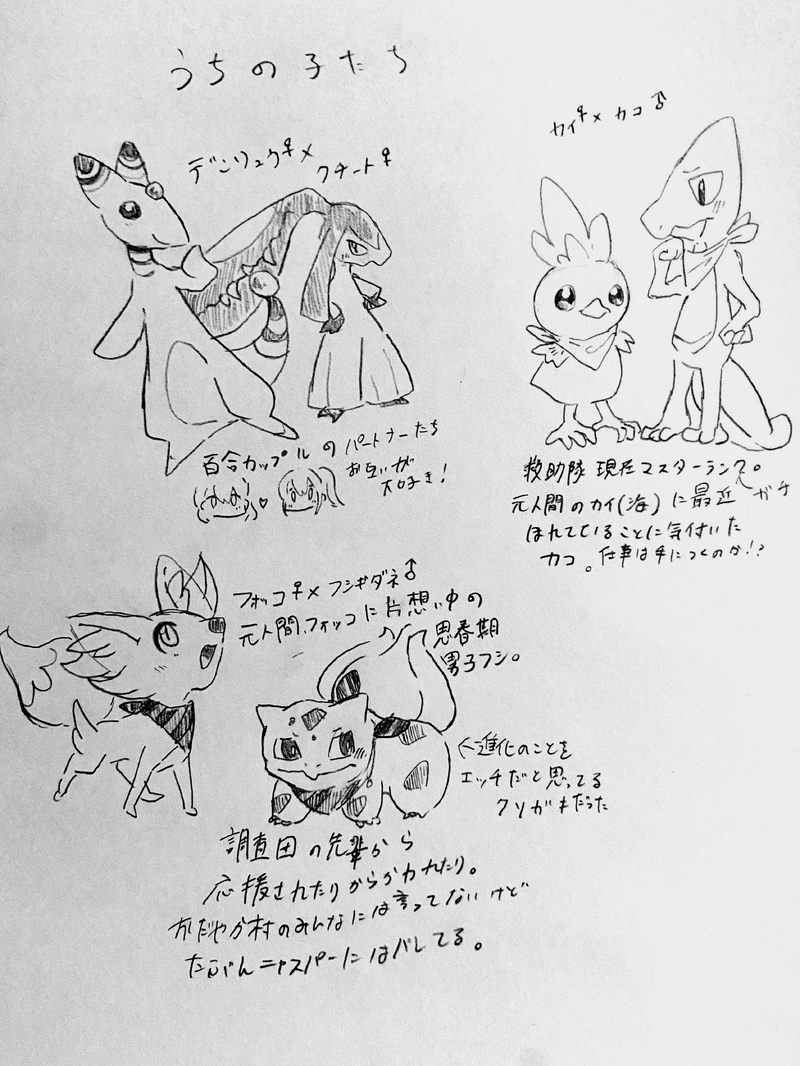 うちの子たち
デンリュウ♀×
クチート♀
百合カップルのパートナーたち
お互いが
大好き！
カイ♀×カコ♂
救助隊 現在マスターランク。
元人間のカイ(海)に最近ガチ
ほれていることに気付いた
カコ。仕事は手につくのか!?
フォッコ♀×フシギダネ♂
元人間、フォッコに片想い中の
思春期
男子フシ。
←進化のことを
エッチだと思ってる
クソガキだった
調査団の先輩から
応援されたりからかわれたり。
おだやか村のみんなには言ってないけど
たぶんニャスパーにはバレてる。